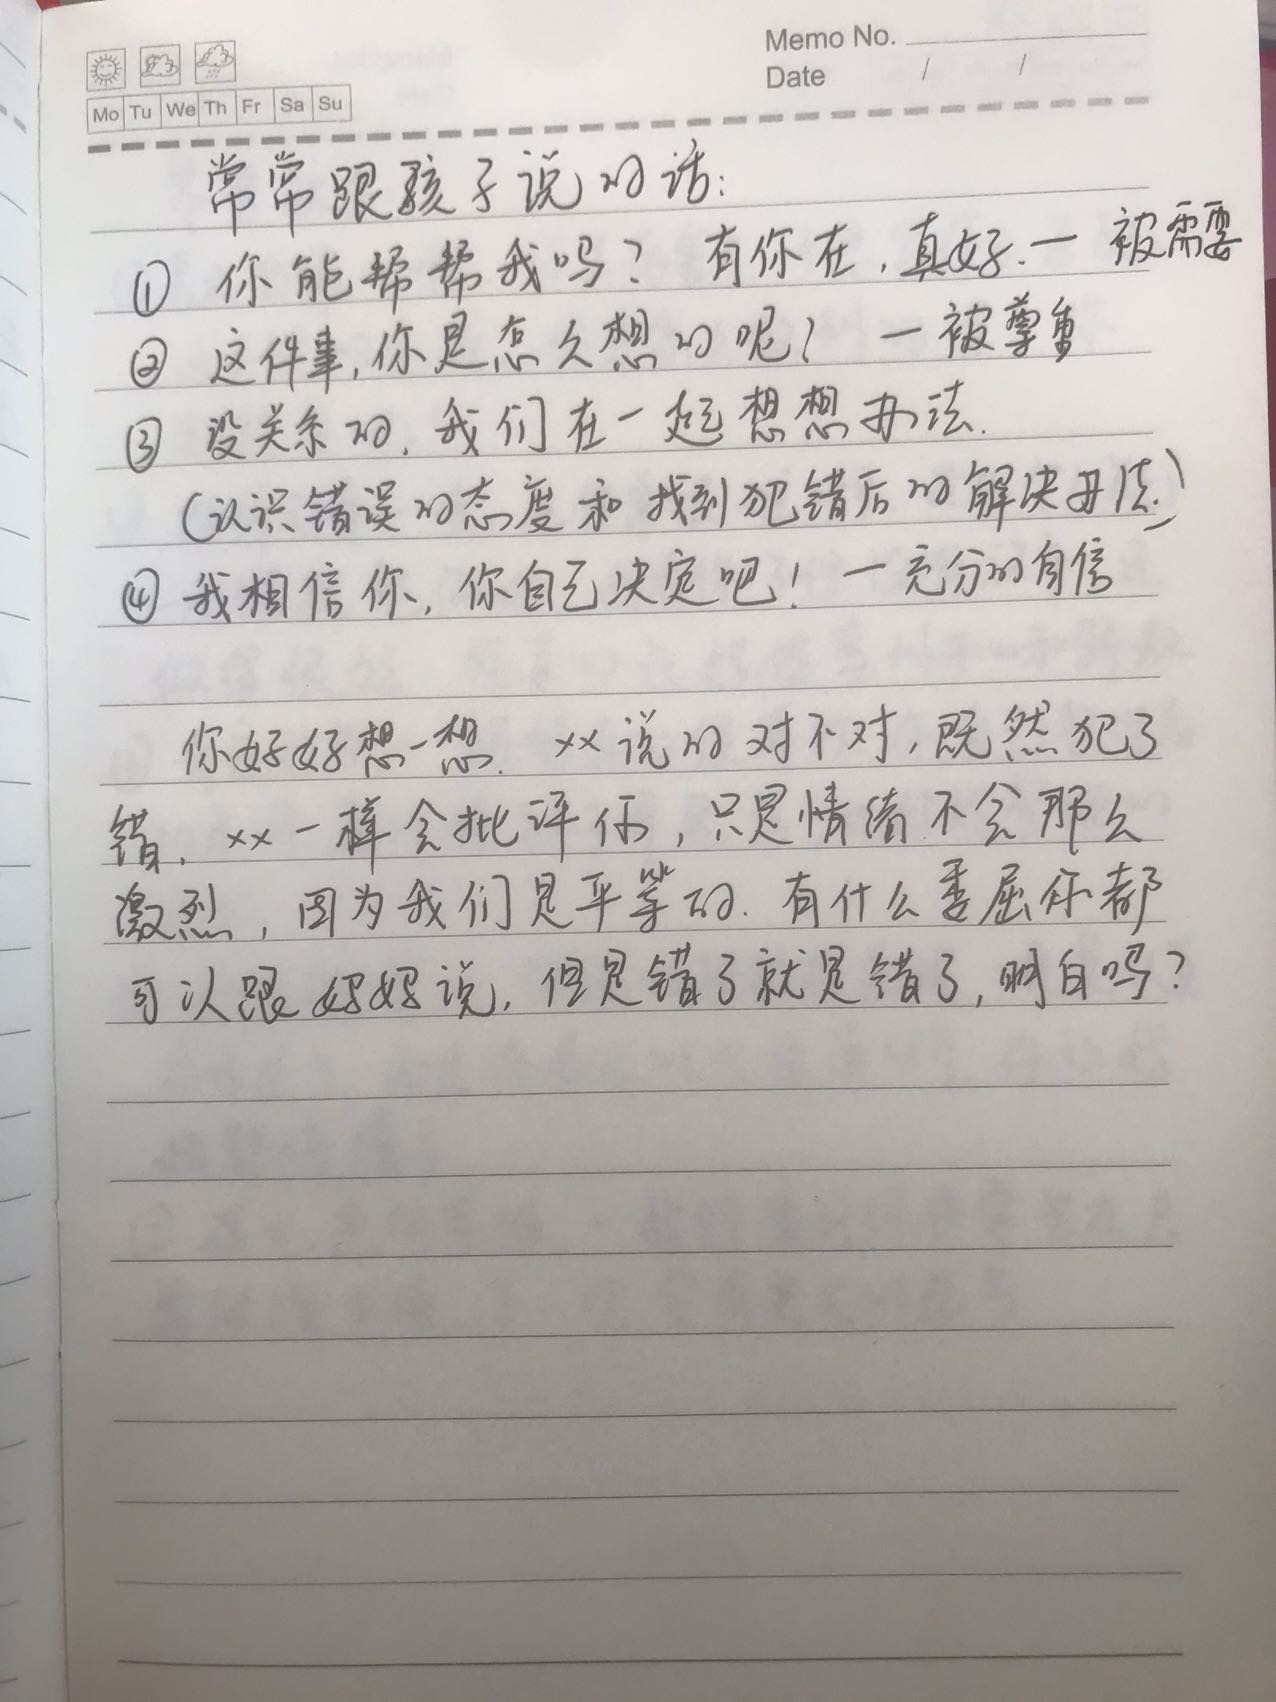 Memo No.
Date / /
Mo Tu We Th Fr Sa Su
常常跟孩子说的话：
① 你能帮帮我吗？有你在，真好.一 被需要
② 这件事，你是怎么想的呢！ 一被尊重
③ 没关系的，我们在一起想想办法.
（认识错误的态度和找到犯错后的解决办法.）
④ 我相信你，你自己决定吧！ 一充分的自信
你好好想一想. ××说的对不对，既然犯了
错，××一样会批评你，只是情绪不会那么
激烈，因为我们是平等的.有什么委屈你都
可以跟妈妈说，但是错了就是错了，明白吗？